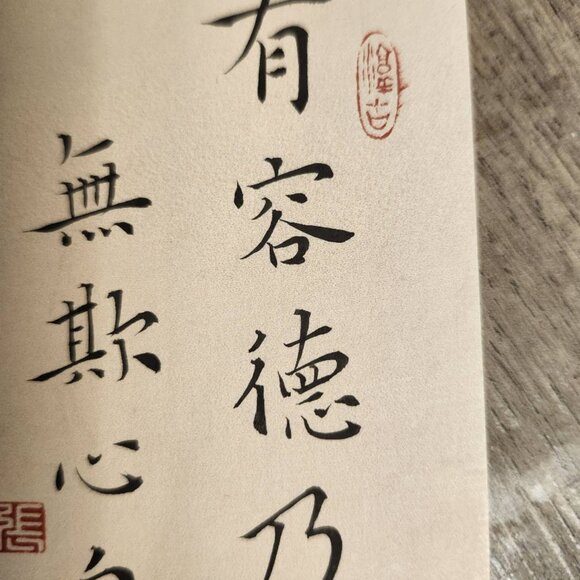 有容德乃
無欺心自
張